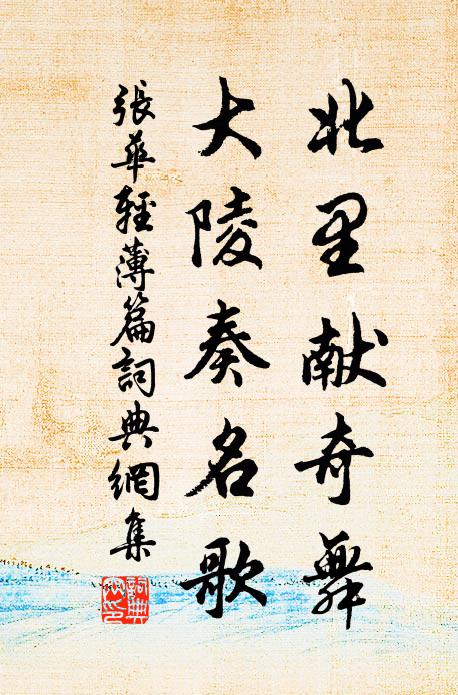 北里献奇舞
大陵奏名歌
張華輕薄篇詞典網集